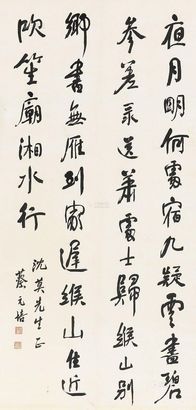 夜月明何處宿九疑雲盡碧
參差送蕭處士歸緱山別
鄉書無雁到家遲緱山住近
吹笙廟湘水行
沈莫先生正
蔡元培